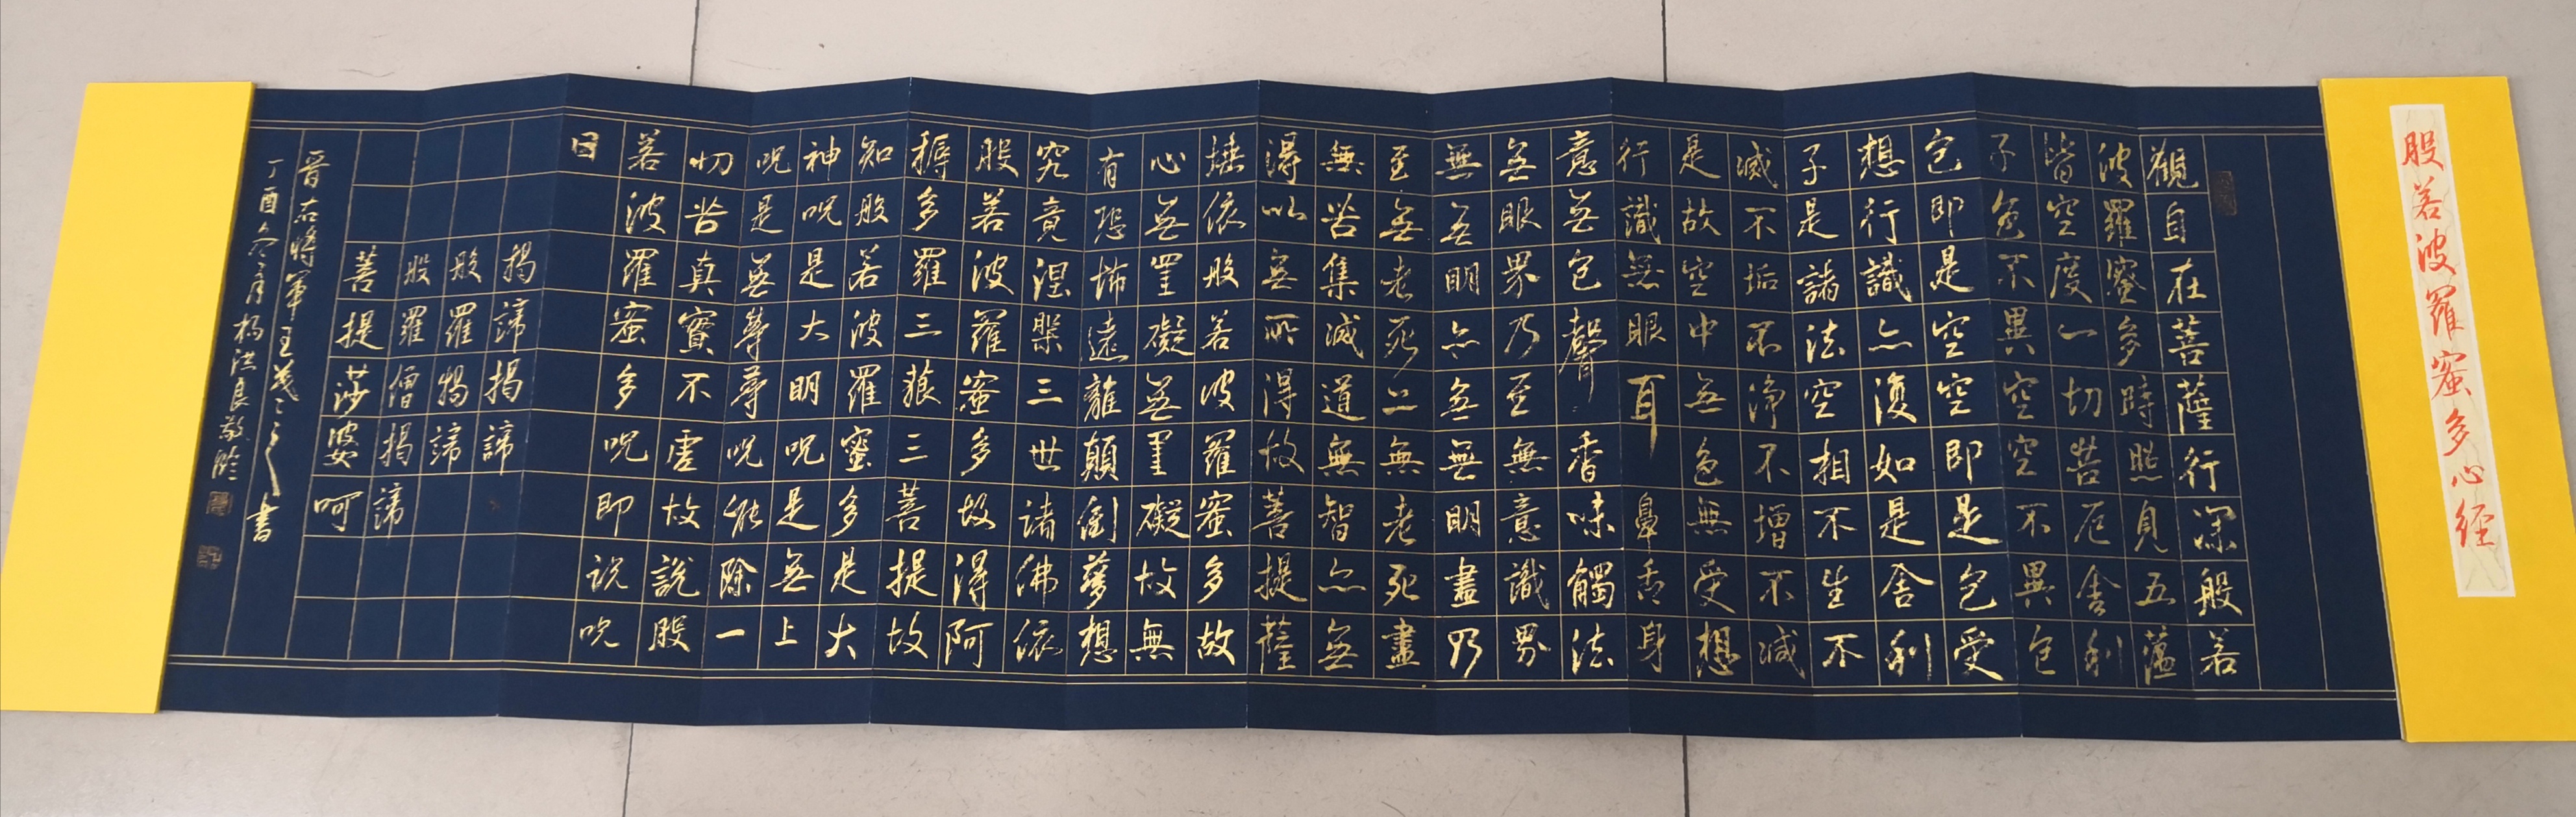 般若波羅蜜多心経
觀自在菩薩行深般若
波羅蜜多時照見五蘊
皆空度一切苦厄舍利
子色不異空空不異色
色即是空空即是色受
想行識亦復如是舍利
子是諸法空相不生不
滅不垢不淨不增不減
是故空中無色無受想
行識無眼耳鼻舌身
意無色聲香味觸法
無眼界乃至無意識界
無無明亦無無明盡乃
至無老死亦無老死盡
無苦集滅道無智亦無
得以無所得故菩提薩
埵依般若波羅蜜多故
心無罣礙無罣礙故無
有恐怖遠離顛倒夢想
究竟涅槃三世諸佛依
般若波羅蜜多故得阿
耨多羅三藐三菩提故
知般若波羅蜜多是大
神咒是大明咒是無上
咒是無等等咒能除一
切苦真實不虛故說般
若波羅蜜多咒即說咒
曰
揭諦揭諦
般羅揭諦
般羅僧揭諦
菩提莎婆呵
晉右將軍王羲之書
丁酉冬月楊洪良敬臨